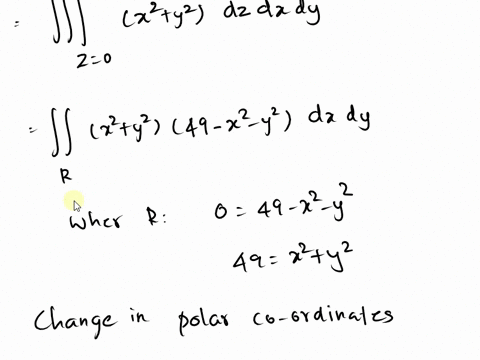 = ∭ (x²+y²) dz dx dy
z=0
= ∬ (x²+y²) (49-x²-y²) dx dy
R
Wher R: 0 = 49-x²-y²
49 = x²+y²
Change in polar co-ordinates